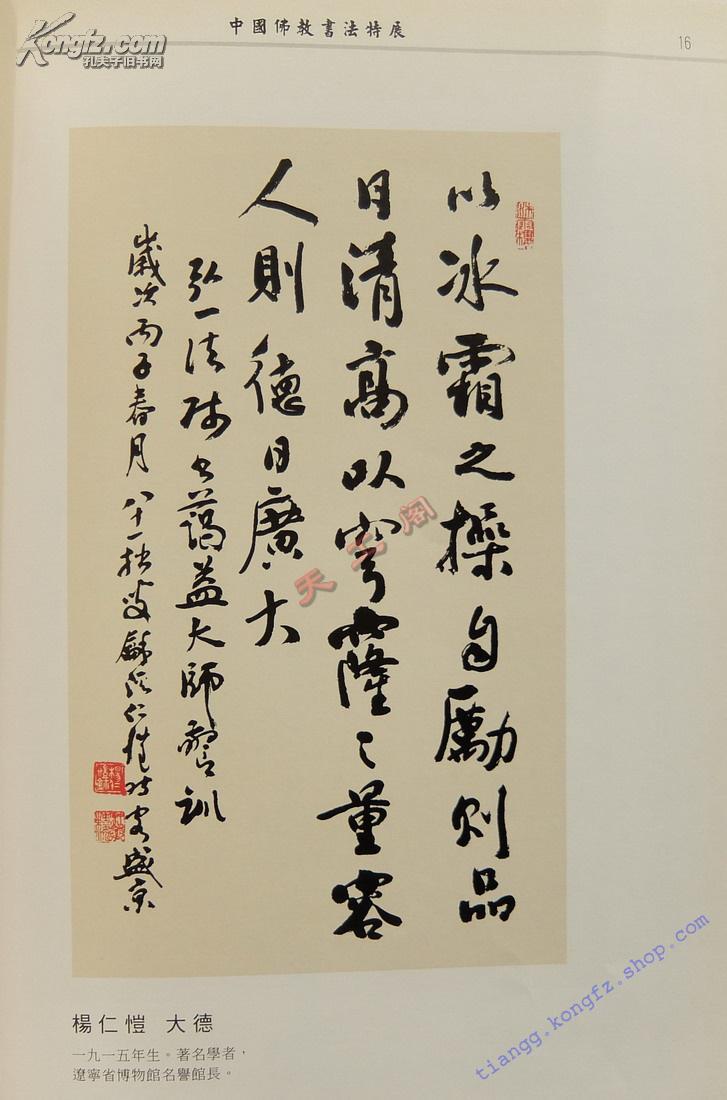 Kongfz.com
孔夫子旧书网
中國佛教書法特展
16
以冰霜之操自勵則品
日清高以穹窿之量容
人則德日廣大
弘一法師書蕅益大師警訓
歲次丙子春月八十一拙叟龢溪仁愷時客盛京
天工阁
楊仁愷 大德
一九一五年生。著名學者，
遼寧省博物館名譽館長。
tiangg.kongfz.shop.com